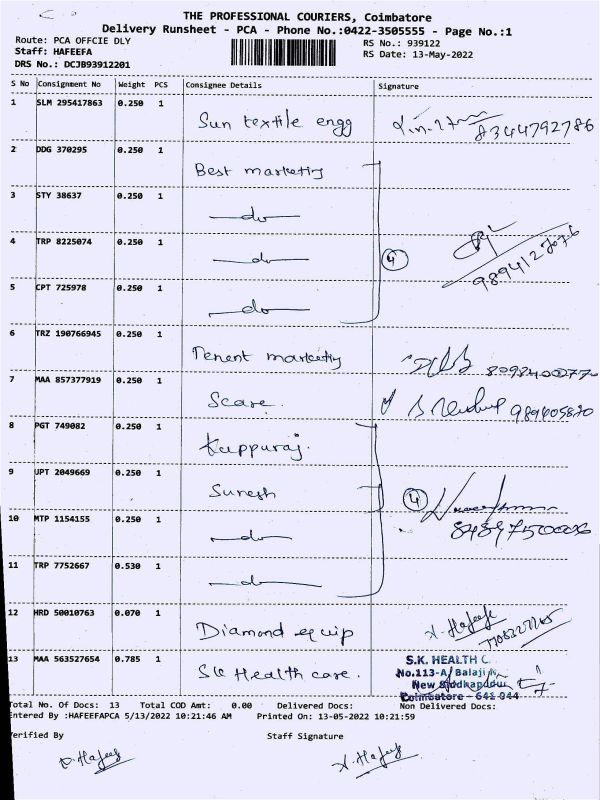 THE PROFESSIONAL COURIERS, Coimbatore
Delivery Runsheet - PCA - Phone No.:0422-3505555 - Page No.:1
Route: PCA OFFCIE DLY
RS No.: 939122
Staff: HAFEEFA
RS Date: 13-May-2022
DRS No.: DCJB93912201
S No Consignment No Weight PCS Consignee Details Signature
1 SLM 295417863 0.250 1 Sun textile engg 8344792786
2 DDG 370295 0.250 1 Best marketing
3 STY 38637 0.250 1 do
4 TRP 8225074 0.250 1 do 4
5 CPT 725978 0.250 1 do
6 TRZ 190766945 0.250 1 Tenent marketing
7 MAA 857377919 0.250 1 Scare.
8 PGT 749082 0.250 1 Kuppuraj.
9 UPT 2049669 0.250 1 Suresh 4
10 MTP 1154155 0.250 1 do
11 TRP 7752667 0.530 1 do
12 HRD 50010763 0.070 1 Diamond equip
13 MAA 563527654 0.785 1 SK Health care.
S.K. HEALTH C
No.113-A, Balaji
New Siddhapudur
Coimbatore - 641 044
Total No. Of Docs: 13 Total COD Amt: 0.00 Delivered Docs: Non Delivered Docs:
Entered By :HAFEEFAPCA 5/13/2022 10:21:46 AM Printed On: 13-05-2022 10:21:59
Verified By Staff Signature